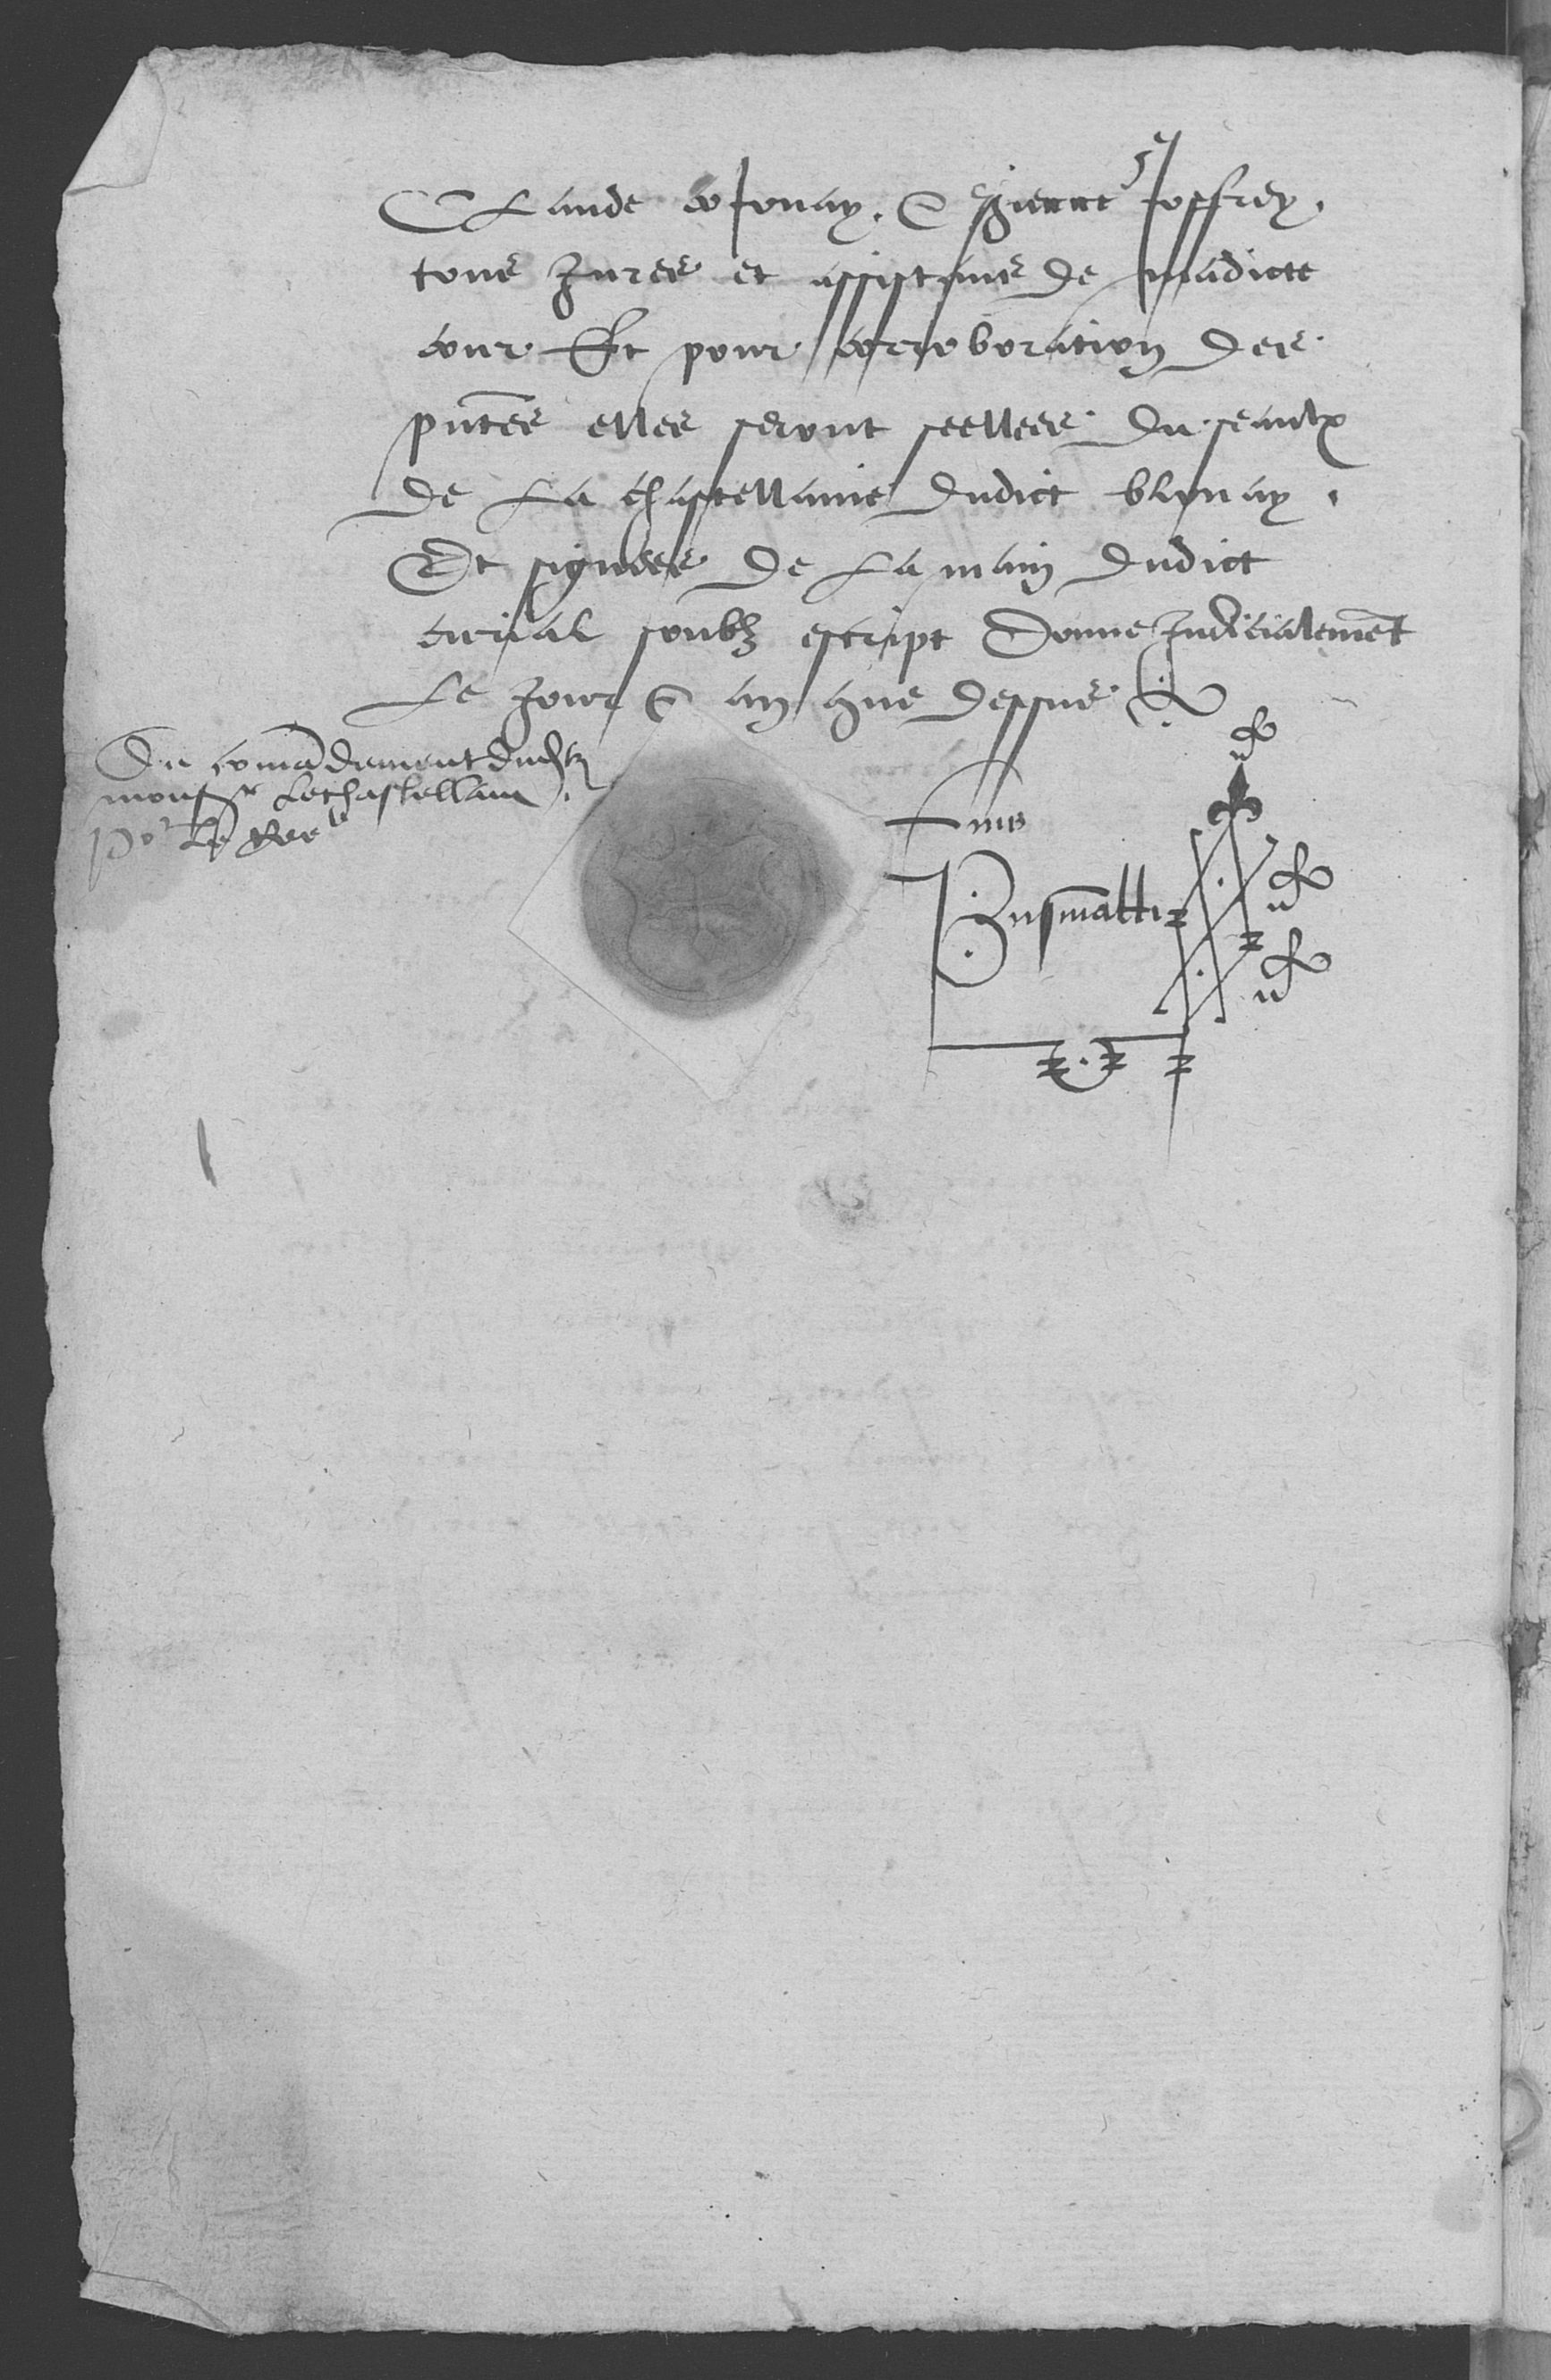 Claude cosonay. & Estienne Joffrey.
tous Jures et assistans de madicte
cour Et pour corroboration des
pntes elles seront seellees du seaulx
de La chastellanie dudict blonay.
Et signees de La main dudict
curial soubz escript Donne Judicialement
Le Jour & an que dessus
Du comãdement dudict
monsr Le chastellain.